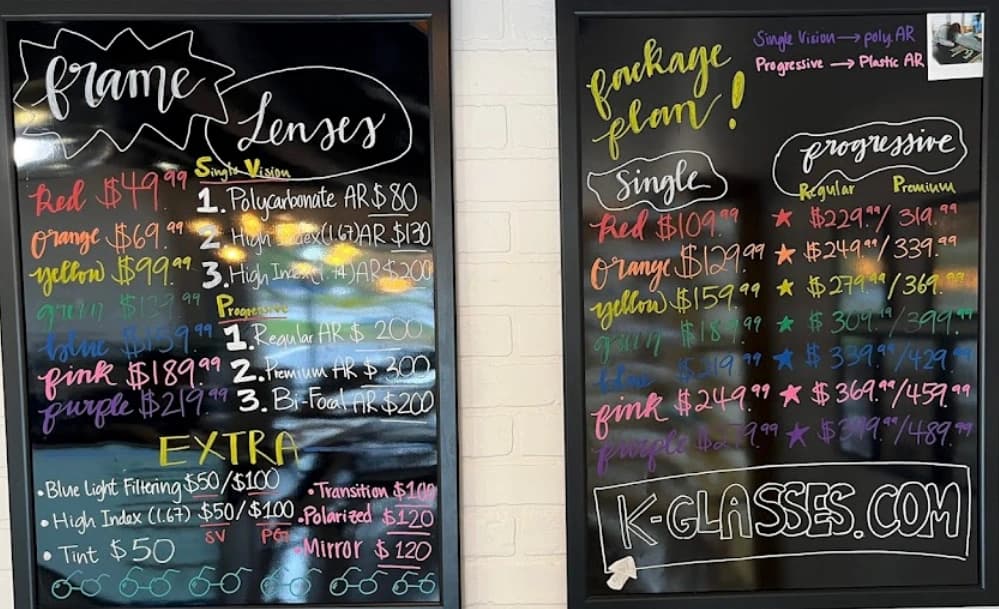 frame
Lenses
Single Vision
Red $49.99
1. Polycarbonate AR $80
Orange $69.99
2. High Index (1.67) AR $130
yellow $99.99
3. High Index AR $200
green $139.99
Progressive
blue $159.99
1. Regular AR $200
pink $189.99
2. Premium AR $300
purple $219.99
3. Bi-Focal AR $200
EXTRA
• Blue Light Filtering $50/$100
• Transition $100
• High Index (1.67) $50/$100
SV PG
• Polarized $120
• Tint $50
• Mirror $120
package plan!
Single Vision → poly. AR
Progressive → Plastic AR
Single
progressive
Regular Premium
Red $109.99 ★ $229.99/319.99
Orange $129.99 ★ $249.99/339.99
yellow $159.99 ★ $279.99/369.99
green $189.99 ★ $309.99/399.99
blue $219.99 ★ $339.99/429.99
pink $249.99 ★ $369.99/459.99
purple $279.99 ★ $399.99/489.99
K-GLASSES.COM